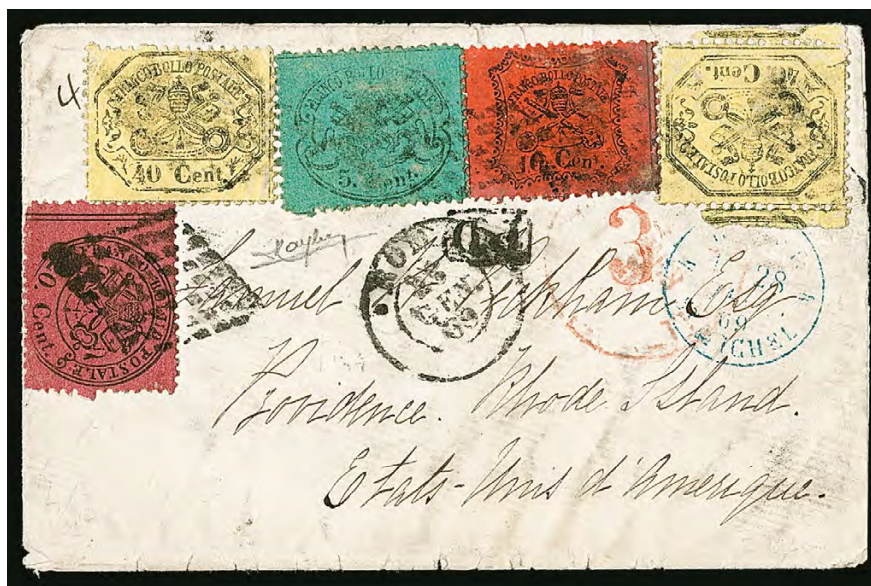 4
FRANCO BOLLO POSTALE
40 Cent.
FRANCO BOLLO POSTALE
5. Cent.
FRANCO BOLLO POSTALE
10 Cent.
FRANCO BOLLO POSTALE
40 Cent.
FRANCO BOLLO POSTALE
Cent.
ROMA
14
GEN.
69
P.D.
3
28
69
Samuel Esq
Providence. Rhode Island.
Etats-Unis d'Amerique.